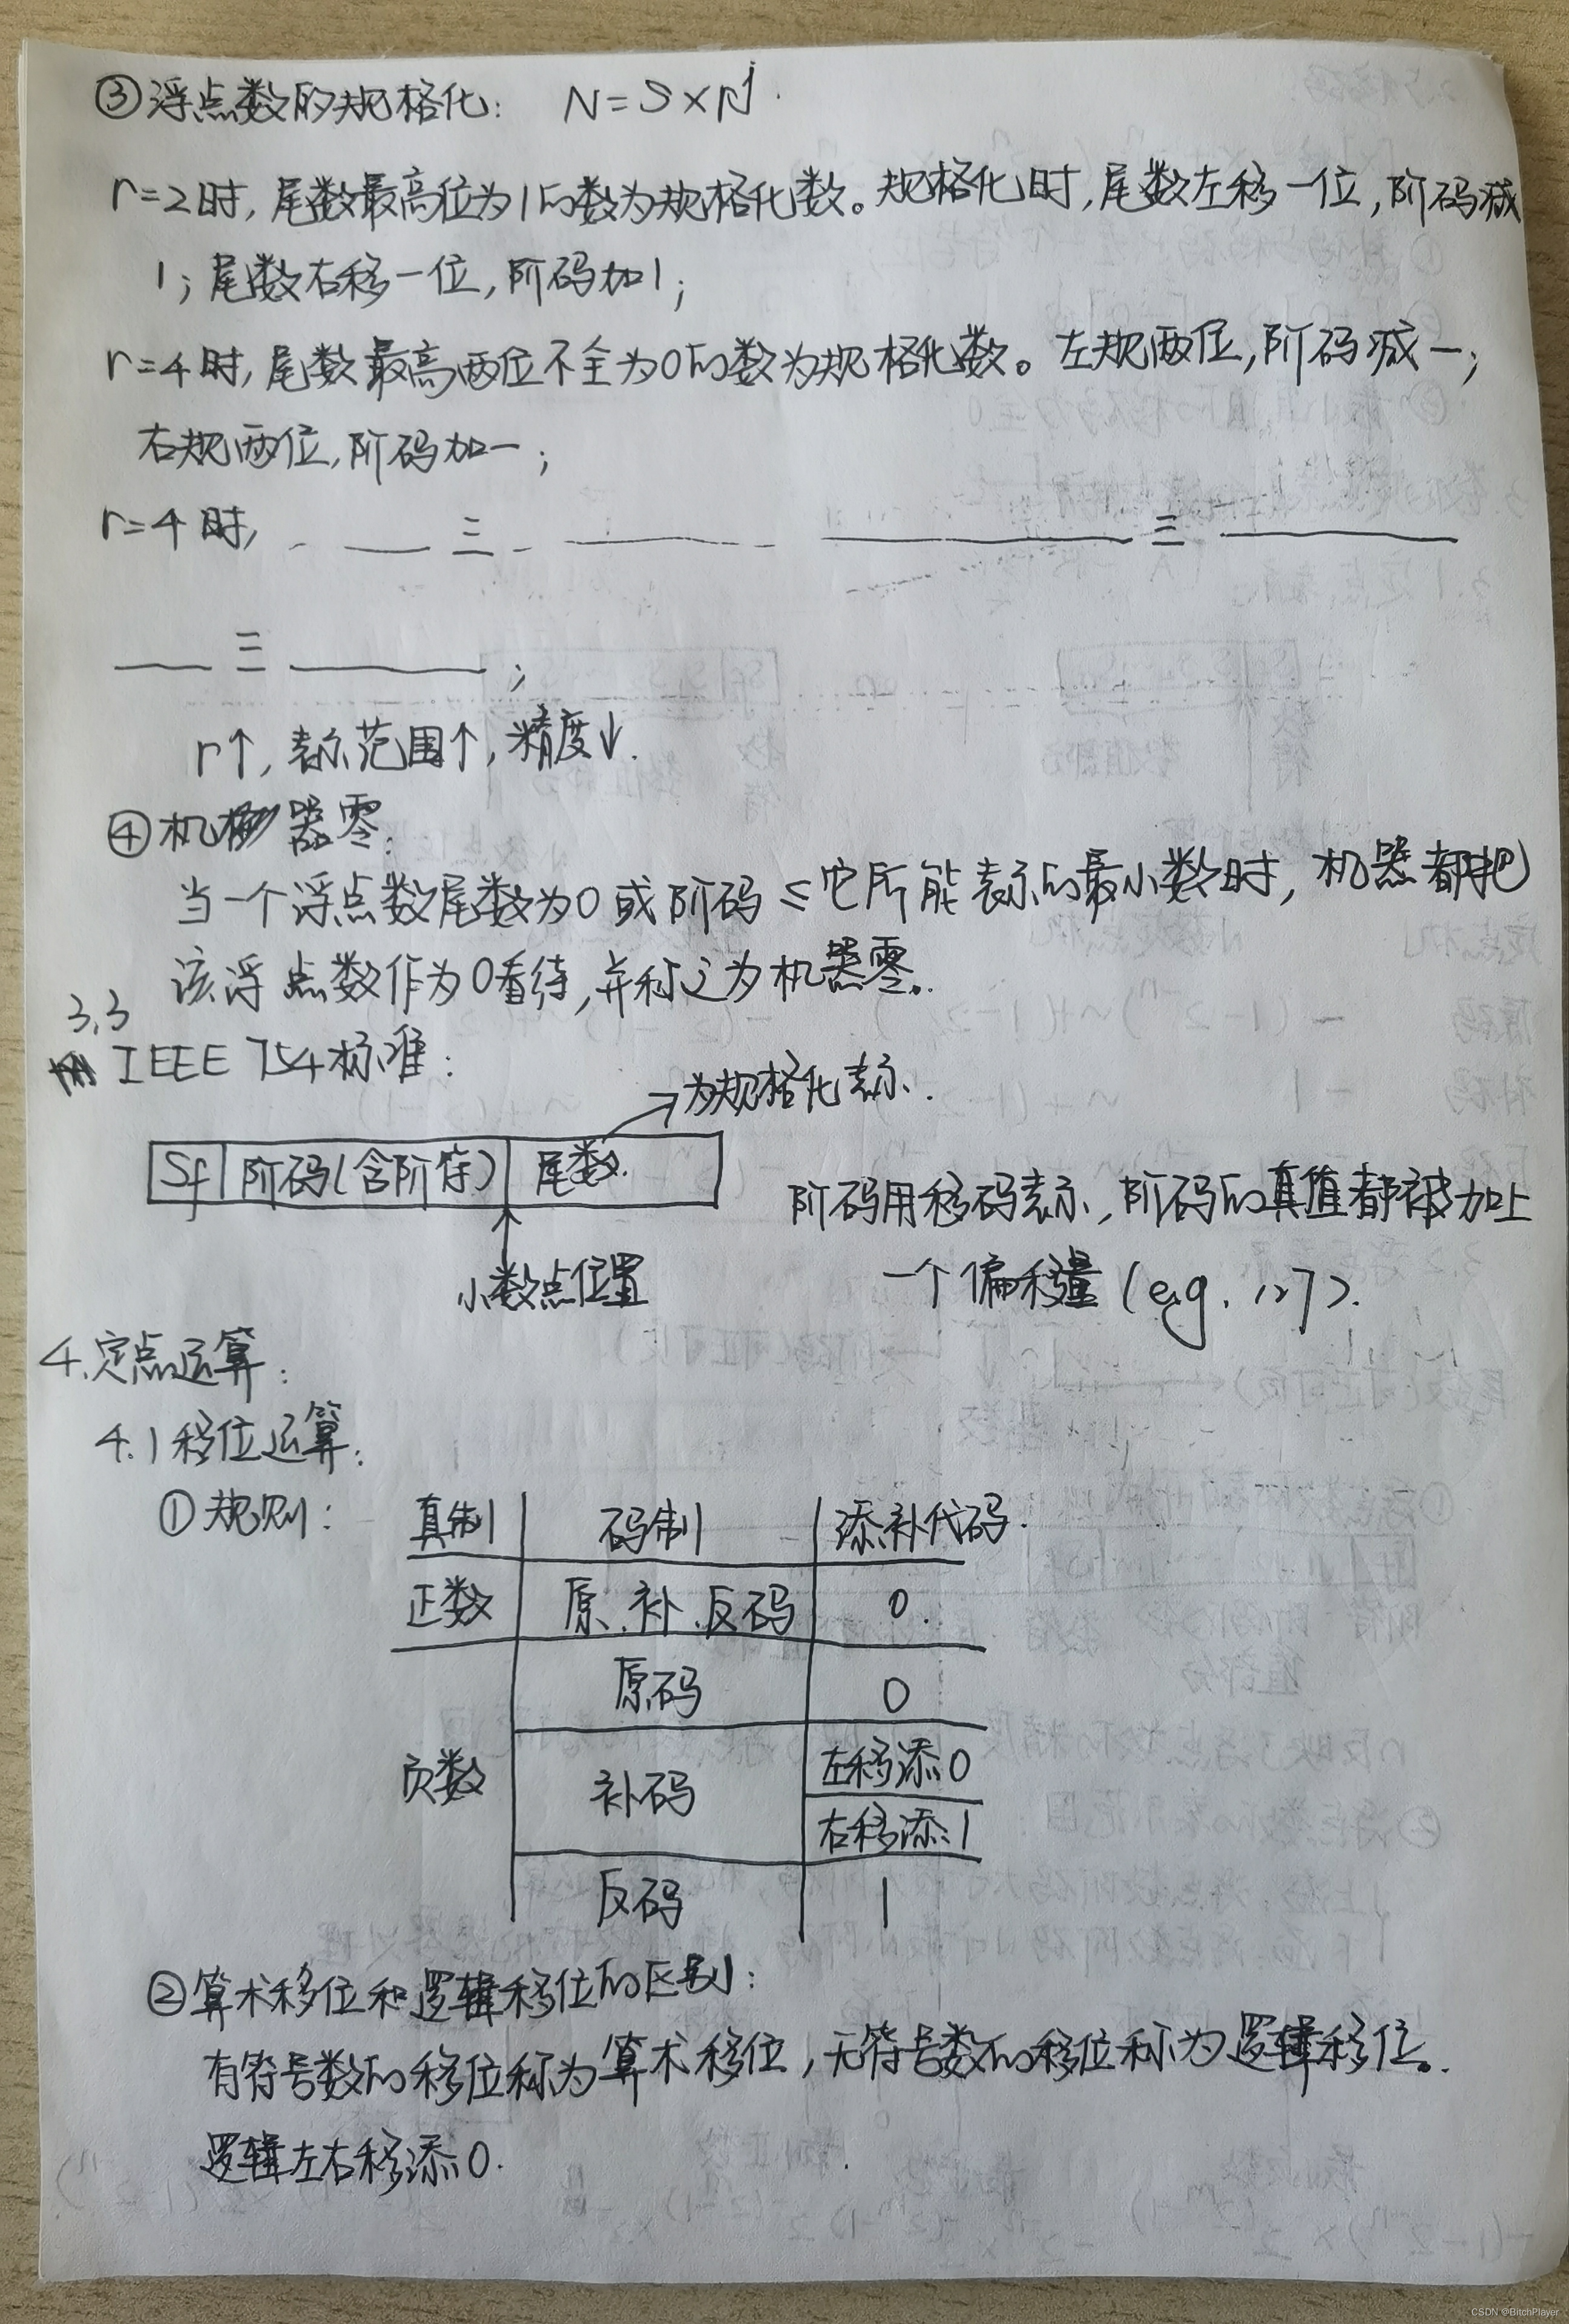 ③浮点数的规格化: N=S×r^j.
r=2时,尾数最高位为1的数为规格化数。规格化时,尾数左移一位,阶码减
1;尾数右移一位,阶码加1;
r=4时,尾数最高两位不全为0的数为规格化数。左规两位,阶码减一;
右规两位,阶码加一;
r=4时, 三 三
三 ;
r↑,表示范围↑,精度↓.
④机器零:
当一个浮点数尾数为0或阶码≤它所能表示的最小数时,机器都把
该浮点数作为0看待,并称之为机器零。
3.3
IEEE 754标准:
→为规格化表示.
Sf 阶码(含阶符) 尾数.
阶码用移码表示,阶码的真值都被加上
小数点位置
一个偏移量(e.g. 127).
4.定点运算:
4.1移位运算.
①规则: 真制 码制 添补代码.
正数 原.补.反码 0.
原码 0
负数 补码 左移添0
右移添1
反码 1
②算术移位和逻辑移位的区别:
有符号数的移位称为算术移位,无符号数的移位称为逻辑移位。
逻辑左右移添0.
CSDN @BitchPlayer